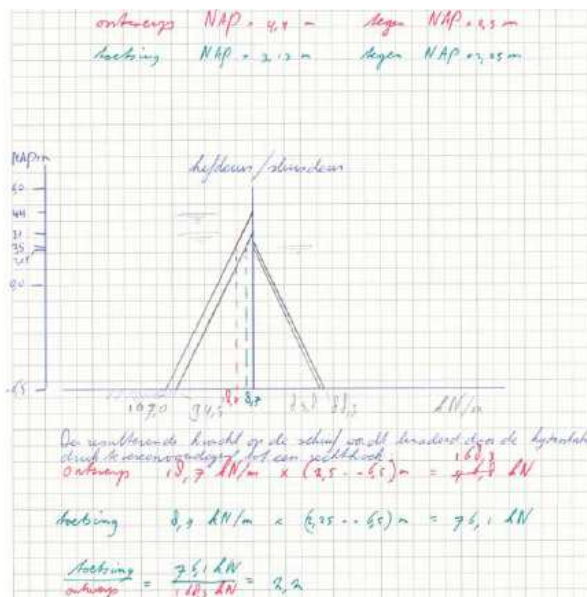 ontwerp NAP + 4,4 m tegen NAP + 2,5 m
toetsing NAP + 3,12 m tegen NAP + 2,25 m
NAP+m
hefdeur/sluisdeur
6,0
4,4
3,1
2,5
0,0
-6,5
107,0 94,3 88,3 kN/m
De resulterende kracht op de schuif wordt benaderd door de hydrostatische
druk te vereenvoudigen tot een rechthoek.
ontwerp 18,7 kN/m x (2,5 - -6,5) m = 168,3 kN
toetsing 8,7 kN/m x (2,25 - - 6,5) m = 76,1 kN
toetsing 76,1 kN
ontwerp = 168,3 kN = 2,2